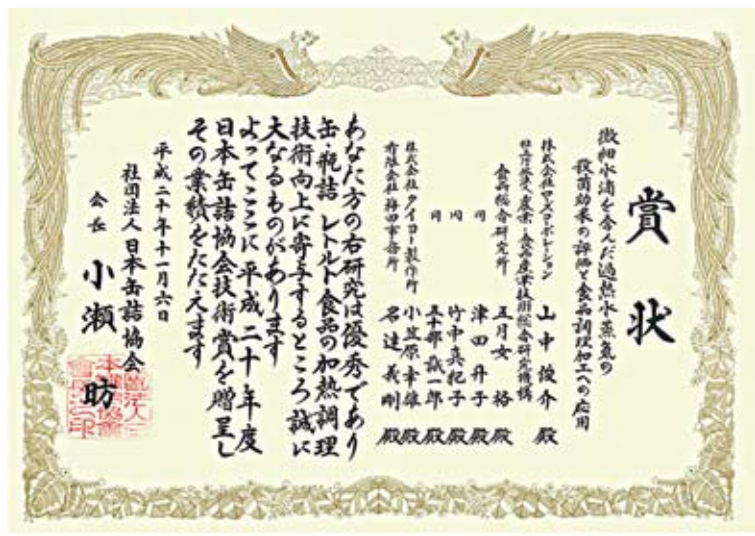 賞状
微細水滴を含んだ過熱水蒸気の
殺菌効果の評価と食品調理加工への応用
山中俊介 殿
食品総合研究所
五月女 格 殿
同 津田升子 殿
同 竹中真紀子 殿
同 五十部誠一郎 殿
株式会社 タイヨー製作所 小笠原幸雄 殿
有限会社 梅田事務所 名達義剛 殿
あなた方の右研究は優秀であり
缶・瓶詰 レトルト食品の加熱調理
技術向上に寄与するところ誠に
大なるものがあります
よってここに平成二十年度
日本缶詰協会技術賞を贈呈し
その業績をたたえます
平成二十年十一月六日
社団法人 日本缶詰協会
会長 小瀬 昉